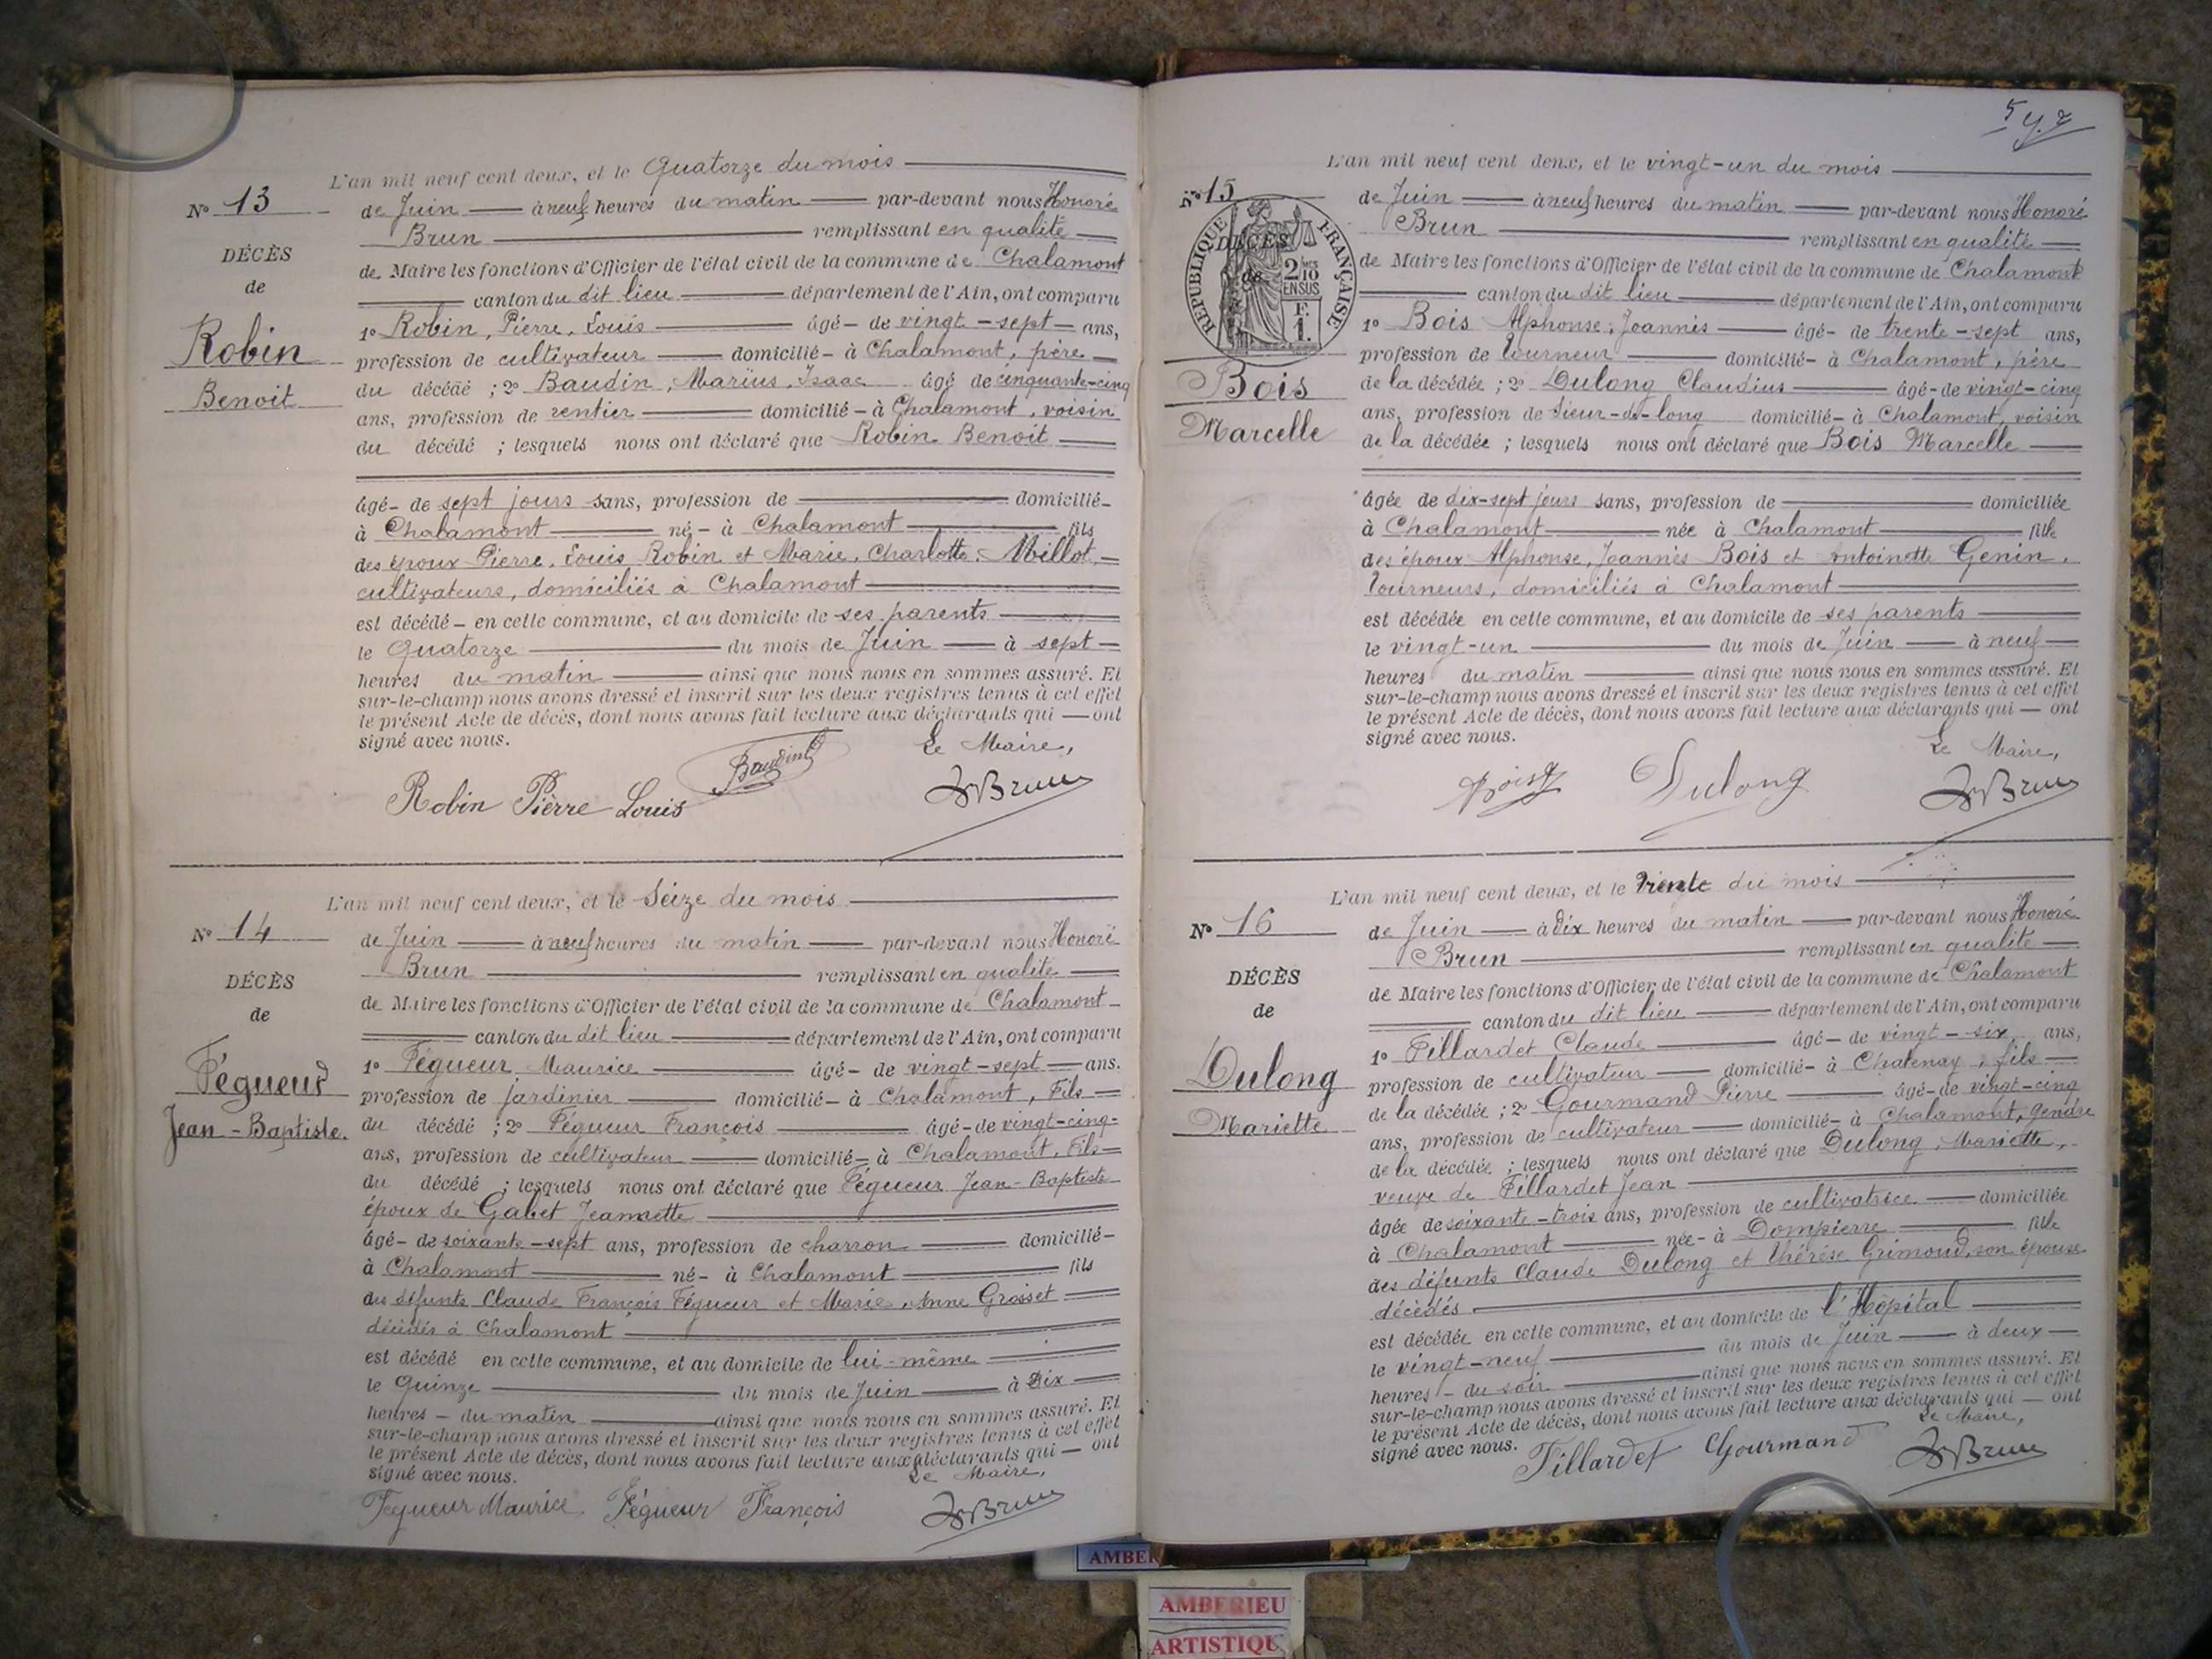 L'an mil neuf cent deux, et le Quatorze du mois
N° 13
de Juin à neuf heures du matin par-devant nous Honoré
Brun remplissant en qualité
DÉCÈS
de Maire les fonctions d'Officier de l'état civil de la commune de Chalamont
de
canton du dit lieu département de l'Ain, ont comparu
Robin
Benoit
1° Robin, Pierre, Louis âgé de vingt-sept ans,
profession de cultivateur domicilié à Chalamont, père
du décédé ; 2° Baudin, Marius, Isaac âgé de cinquante-cinq
ans, profession de rentier domicilié à Chalamont, voisin
du décédé ; lesquels nous ont déclaré que Robin Benoit
âgé de sept jours sans, profession de domicilié
à Chalamont né à Chalamont fils
des époux Pierre, Louis Robin et Marie, Charlotte, Millot,
cultivateurs, domiciliés à Chalamont
est décédé en cette commune, et au domicile de ses parents
le Quatorze du mois de Juin à sept
heures du matin ainsi que nous nous en sommes assuré. Et
sur-le-champ nous avons dressé et inscrit sur les deux registres tenus à cet effet
le présent Acte de décès, dont nous avons fait lecture aux déclarants qui ont
signé avec nous.
Le Maire,
Robin Pierre Louis Baudin Brun
L'an mil neuf cent deux, et le Seize du mois
N° 14
de Juin à neuf heures du matin par-devant nous Honoré
Brun remplissant en qualité
DÉCÈS
de Maire les fonctions d'Officier de l'état civil de la commune de Chalamont
de
canton du dit lieu département de l'Ain, ont comparu
Fégueur
Jean-Baptiste.
1° Fégueur, Maurice âgé de vingt-sept ans.
profession de jardinier domicilié à Chalamont, Fils
du décédé ; 2° Fégueur François âgé de vingt-cinq
ans, profession de cultivateur domicilié à Chalamont, Fils
du décédé ; lesquels nous ont déclaré que Fégueur Jean-Baptiste
époux de Gabet Jeannette
âgé de soixante-sept ans, profession de charron domicilié
à Chalamont né à Chalamont fils
des défunts Claude François Fégueur et Marie, Anne Grosset
décédés à Chalamont
est décédé en cette commune, et au domicile de lui-même
le Quinze du mois de Juin à Dix
heures du matin ainsi que nous nous en sommes assuré. Et
sur-le-champ nous avons dressé et inscrit sur les deux registres tenus à cet effet
le présent Acte de décès, dont nous avons fait lecture aux déclarants qui ont
signé avec nous.
Le Maire,
Fegueur Maurice Fégueur François Brun
L'an mil neuf cent deux, et le vingt-un du mois
N° 15
RÉPUBLIQUE FRANÇAISE
2 10
EN SUS
F.
1.
de Juin à neuf heures du matin par-devant nous Honoré
Brun remplissant en qualité
DÉCÈS
de
de Maire les fonctions d'Officier de l'état civil de la commune de Chalamont
canton du dit lieu département de l'Ain, ont comparu
Bois
Marcelle
1° Bois Alphonse, Joannès âgé de trente-sept ans,
profession de tourneur domicilié à Chalamont, père
de la décédée ; 2° Dulong Claudius âgé de vingt-cinq
ans, profession de sieur-de-long domicilié à Chalamont, voisin
de la décédée ; lesquels nous ont déclaré que Bois Marcelle
âgée de dix-sept jours sans, profession de domiciliée
à Chalamont née à Chalamont fille
des époux Alphonse, Joannès Bois et Antoinette Genin,
tourneurs, domiciliés à Chalamont
est décédée en cette commune, et au domicile de ses parents
le vingt-un du mois de Juin à neuf
heures du matin ainsi que nous nous en sommes assuré. Et
sur-le-champ nous avons dressé et inscrit sur les deux registres tenus à cet effet
le présent Acte de décès, dont nous avons fait lecture aux déclarants qui ont
signé avec nous.
Le Maire,
Bois Dulong Brun
L'an mil neuf cent deux, et le Trente du mois
N° 16
de Juin à Dix heures du matin par-devant nous Honoré
Brun remplissant en qualité
DÉCÈS
de Maire les fonctions d'Officier de l'état civil de la commune de Chalamont
de
canton du dit lieu département de l'Ain, ont comparu
Dulong
Mariette
1° Fillardet Claude âgé de vingt-six ans,
profession de cultivateur domicilié à Chatenay, fils
de la décédée ; 2° Gourmand Pierre âgé de vingt-cinq
ans, profession de cultivateur domicilié à Chalamont, gendre
de la décédée ; lesquels nous ont déclaré que Dulong, Mariette,
veuve de Fillardet Jean
âgée de soixante-trois ans, profession de cultivatrice domiciliée
à Chalamont née à Dompierre fille
des défunts Claude Dulong et Thérèse Grimoud, son épouse
décédés
est décédée en cette commune, et au domicile de l'Hôpital
le vingt-neuf du mois de Juin à deux
heures du soir ainsi que nous nous en sommes assuré. Et
sur-le-champ nous avons dressé et inscrit sur les deux registres tenus à cet effet
le présent Acte de décès, dont nous avons fait lecture aux déclarants qui ont
signé avec nous.
Le Maire,
Fillardet Gourmand Brun
AMBER
AMBERIEU
ARTISTIQU